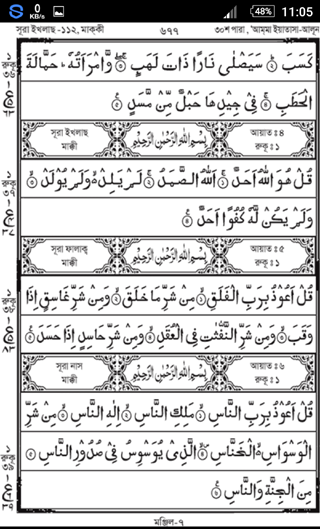 0 KB/s 48% 11:05
সূরা ইখলাছ -১১২, মাক্কী ৬৭৭ ৩০শ পারা, 'আম্মা ইয়াতাসা-আলূন
كَسَبَ ۝ سَيَصْلٰى نَارًا ذَاتَ لَهَبٍ ۝ وَّامْرَاَتُهٗ ؕ حَمَّالَةَ
الْحَطَبِ ۝ فِىْ جِيْدِهَا حَبْلٌ مِّنْ مَّسَدٍ ۝
সূরা ইখলাছ بِسْمِ اللّٰهِ الرَّحْمٰنِ الرَّحِيْمِ আয়াত : ৪
মাক্কী রুকু : ১
قُلْ هُوَ اللّٰهُ اَحَدٌ ۝ اَللّٰهُ الصَّمَدُ ۝ لَمْ يَلِدْ ۙ وَلَمْ يُوْلَدْ ۝
وَلَمْ يَكُنْ لَّهٗ كُفُوًا اَحَدٌ ۝
সূরা ফালাক্ব بِسْمِ اللّٰهِ الرَّحْمٰنِ الرَّحِيْمِ আয়াত : ৫
মাক্কী রুকু : ১
قُلْ اَعُوْذُ بِرَبِّ الْفَلَقِ ۝ مِنْ شَرِّ مَا خَلَقَ ۝ وَمِنْ شَرِّ غَاسِقٍ اِذَا
وَقَبَ ۝ وَمِنْ شَرِّ النَّفّٰثٰتِ فِى الْعُقَدِ ۝ وَمِنْ شَرِّ حَاسِدٍ اِذَا حَسَدَ ۝
সূরা নাস بِسْمِ اللّٰهِ الرَّحْمٰنِ الرَّحِيْمِ আয়াত : ৬
মাক্কী রুকু : ১
قُلْ اَعُوْذُ بِرَبِّ النَّاسِ ۝ مَلِكِ النَّاسِ ۝ اِلٰهِ النَّاسِ ۝ مِنْ شَرِّ
الْوَسْوَاسِ ۙ الْخَنَّاسِ ۝ الَّذِىْ يُوَسْوِسُ فِىْ صُدُوْرِ النَّاسِ ۝
مِنَ الْجِنَّةِ وَالنَّاسِ ۝
মঞ্জিল-৭